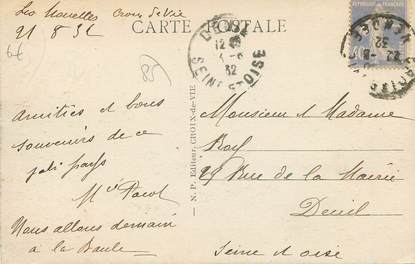 Les Nouelles Croix de Vie
21 8 32
CARTE POSTALE
85
Amitiés et bons
souvenirs de ce
joli pays
Mce Pacot
Nous allons demain
à la Baule
N. P. Editeur, CROIX-de-VIE
12
32
SEINE ET OISE
VENDEE
22 -8
32
Monsieur et Madame
Roy
29 Rue de la Mairie
Deuil
Seine et Oise